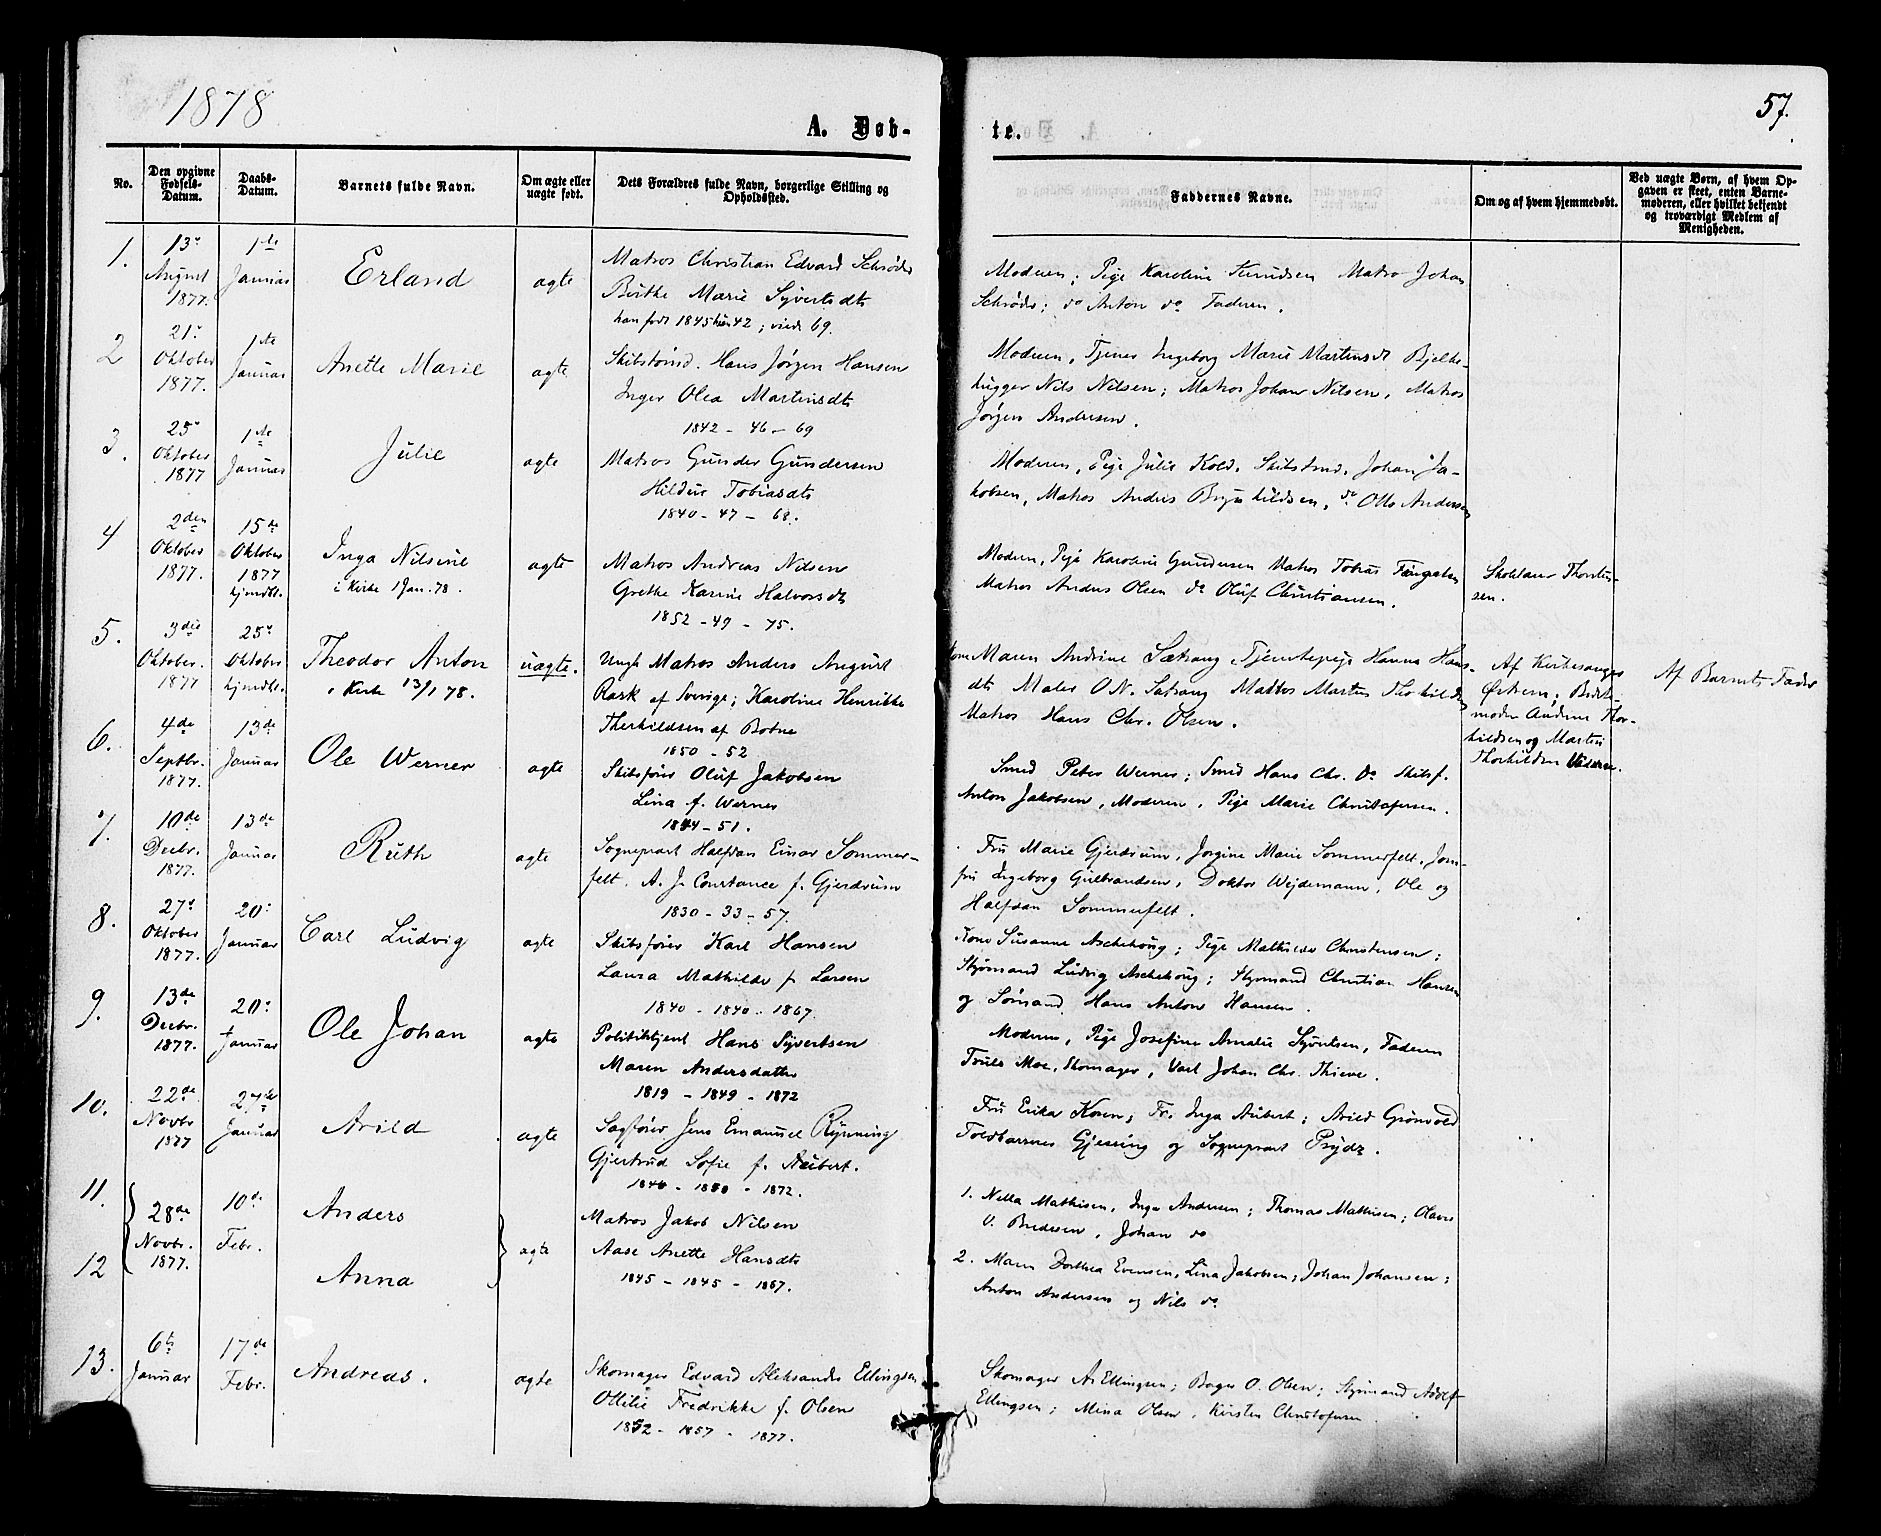 1878
57.
A. Døb-
te.
No.
Den opgivne Fødsels-Datum.
Daabs-Datum.
Barnets fulde Navn.
Om ægte eller uægte født.
Dets Forældres fulde Navn, borgerlige Stilling og Opholdssted.
Faddernes Navne.
Om og af hvem hjemmedøbt.
Ved uægte Børn, af hvem Opgaven er skeet, enten Barnemoderen, eller hvilket bekjendt og troværdigt Medlem af Menigheden.
1.
13de August 1877.
1ste Januar
Erland
ægte
Matros Christian Edvard Schrøder
Berthe Marie Syvertsdt
han født 1845 hun 42; viede 69.
Moderen; Pige Karoline Knudsen Matro Johan
Schrøder; do Anton do. Faderen.
2
21. Oktober 1877.
1ste Januar
Anette Marie
ægte
Skibstømd. Hans Jørgen Hansen
Inger Olea Martinsdt
1842 - 46 - 69
Moderen, Tjenes Ingeborg Marie Martinsdt Bjelke-
hugger Nils Nilsen; Matros Johan Nilsen, Matros
Jørgen Andersen.
3.
25 Oktober 1877
1ste Januar
Julie
ægte
Matros Gunder Gundersen
Hildur Tobiasdt
1840 - 47 - 68.
Moderen, Pige Julie Kold. Skibstmd. Johan Ja-
kobsen, Matros Anders Brynhildsen, do Olls Andersen
4
2den Oktober 1877.
15de Oktober 1877 hjmdbt.
Inga Nilsine
i Kirke 1 Jan. 78.
ægte
Matros Andreas Nilsen
Grethe Karine Halvorsdt
1852 - 49 - 75.
Modern, Pige Karoline Gundersen Matros Tobias
Matros Anders Olsen do Oluf Christiansen.
Skolelærer Thorsten-
sen.
5.
3die Oktober. 1877
25 Oktober hjmdbt.
Theodor Anton
i Kirke 13/1 78.
uægte.
Ungk Matros Anders August
Rask af Sverige; Karoline Henrikke
Therkildsen af
1850 - 52
Kone Maren Andrine Sætrang, Tjenstepige Hanna Hans-
dt Maler O N. Sætrang Matros Martin Thorkildsen
Matros Hans Chr. Olsen.
Af Kirkesanger
Østrem; Bedste-
moder Andrine Thor-
kildsen og Martin
Thorkildsen Vidner.
Af Barnets Fader
6.
4de Septbr. 1877.
13de Januar
Ole Werner
ægte
Skibsfører Oluf Jakobsen
Lina f. Werner
1844 - 51.
Smed Peter Werner; Smed Hans Chr. do Skibsf.
Anton Jakobsen, Moderen, Pige Marie Christofersen.
7.
10de Decbr. 1877.
13de Januar
Ruth
ægte
Sogneprest Halfdan Einar Sommer-
felt. A. J. Constance f. Gjerdrum
1830 - 33 - 57.
Fru Marie Gjerdrum, Jorgine Marie Sommerfelt, Jom-
fru Ingeborg Gulbrandsen, Doktor Wejdemann, Ole og
Halfdan Sommerfelt.
8.
27de Oktober 1877.
20: Januar
Carl Ludvig
ægte
Skibsfører Karl Hansen
Laura Mathilde f Larsen
1840 - 1840 - 1867.
Kone Susanne Aschehoug; Pige Mathilde Christensen;
Styrmand Ludvig Aschehoug; Styrmand Christian Hansen
og Sømand Hans Anton Hansen.
9.
13de Decbr. 1877.
20: Januar
Ole Johan
ægte
Politibtjent Hans Syvertsen
Maren Andersdatter
1819 - 1849 - 1872
Moderen, Pige Josefine Amalie Syvertsen, Faderen
Truls Moe, Skomager, Johan Chr. Thieve.
10.
22de Novbr 1877
27de Januar
Arild
ægte
Sagfører Jens Emanuel Rynning
Gjertrud Sofie f. Aubert.
1846 - 1850 - 1872.
Fru Erika Koren; Fr. Inga Aubert; Arild Grønvold
Toldkasserer Gjessing og Sogneprest Prydz.
11.
28de Novbr. 1877.
10de Febr.
Anders
ægte
Matros Jakob Nilsen
Aase Anette Hansdt
1845 - 1845 - 1867.
1. Nella Mathisen, Inga Andersen; Thomas Mathisen; Olaves
O. Bredesen, Johan do
12
Anna
2. Maren Dorthea Evensen, Lina Jakobsen; Johan Johansen;
Anton Andersen og Nils do.
13.
6te Januar
17de Febr.
Andreas.
ægte
Skomager Edvard Aleksander Ellingsen
Ottilie Fredrikke f. Olsen
1852 - 1857 - 1877.
Skomager A. Ellingsen; Bager O. Olsen; Styrmand Adolf
Ellingsen; Mina Olsen, Kirsten Christofersen.